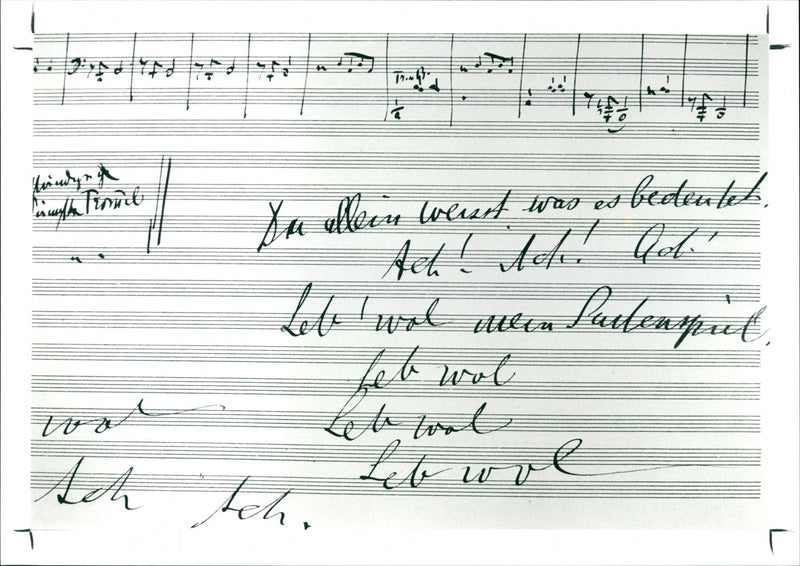 Trommel
Du allein weisst was es bedeutet.
Ach! Ach! Ach!
Leb' wol mein Saitenspiel.
Leb wol
wol Leb wol
Leb wol
Ach Ach.